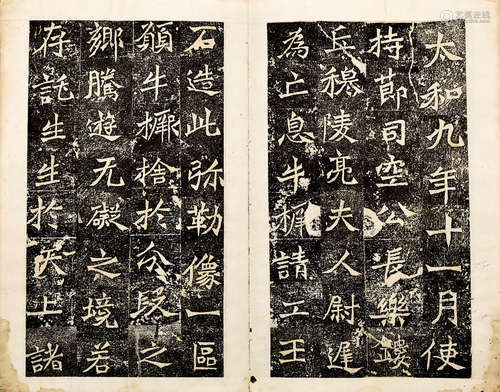 太和九年十一月使
持節司空公長樂
兵穆陵亮夫人尉遲
為亡息牛橛請工
石造此弥勒像一區
願牛橛捨於分段之
鄉騰遊无礙之境若
存託生生於天上諸